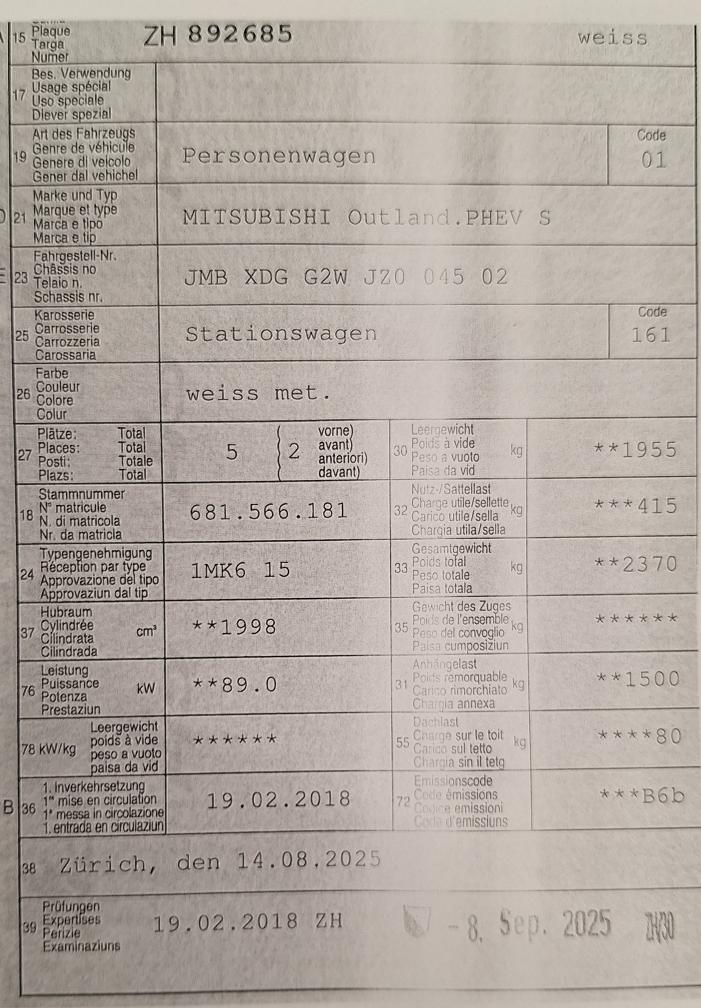 15 Plaque ZH 892685 weiss
Targa
Numer
Bes. Verwendung
17 Usage spécial
Uso speciale
Diever spezial
Art des Fahrzeugs Code
19 Genre de véhicule Personenwagen 01
Genere di veicolo
Gener dal vehichel
Marke und Typ
D 21 Marque et type MITSUBISHI Outland.PHEV S
Marca e tipo
Marca e tip
Fahrgestell-Nr.
E 23 Châssis no JMB XDG G2W JZ0 045 02
Telaio n.
Schassis nr.
Karosserie Code
25 Carrosserie Stationswagen 161
Carrozzeria
Carossaria
Farbe
26 Couleur weiss met.
Colore
Colur
Plätze: Total vorne) Leergewicht
27 Places: Total 5 ( 2 avant) 30 Poids à vide kg **1955
Posti: Totale anteriori) Peso a vuoto
Plazs: Total davant) Paisa da vid
Stammnummer Nutz-/Sattellast
18 N° matricule 681.566.181 32 Charge utile/sellette kg ***415
N. di matricola Carico utile/sella
Nr. da matricla Chargia utila/sella
Typengenehmigung Gesamtgewicht
24 Réception par type 1MK6 15 33 Poids total kg **2370
Approvazione del tipo Peso totale
Approvaziun dal tip Paisa totala
Hubraum Gewicht des Zuges
37 Cylindrée cm³ **1998 35 Poids de l'ensemble kg ******
Cilindrata Peso del convoglio
Cilindrada Paisa cumposiziun
Leistung Anhängelast
76 Puissance kW **89.0 31 Poids remorquable kg **1500
Potenza Carico rimorchiato
Prestaziun Chargia annexa
Leergewicht Dachlast
78 kW/kg poids à vide ****** 55 Charge sur le toit kg ****80
peso a vuoto Carico sul tetto
paisa da vid Chargia sin il tetg
1. Inverkehrsetzung Emissionscode
B 36 1re mise en circulation 19.02.2018 72 Code émissions ***B6b
1a messa in circolazione Codice emissioni
1. entrada en circulaziun Code d'emissiuns
38 Zürich, den 14.08.2025
Prüfungen
39 Expertises 19.02.2018 ZH - 8. Sep. 2025 ZH/30
Perizie
Examinaziuns